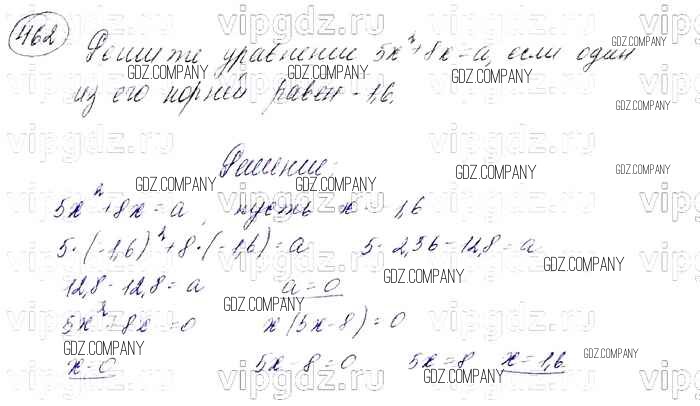 462 Решите уравнение 5x²+8x=a, если один
из его корней равен -1,6.
Решение:
5x²+8x=a, пусть x=-1,6
5·(-1,6)²+8·(-1,6)=a 5·2,56-12,8=a
12,8-12,8=a a=0
5x²-8x=0 x(5x-8)=0
x=0 5x-8=0 5x=8 x=1,6
vipgdz.ru
GDZ.COMPANY